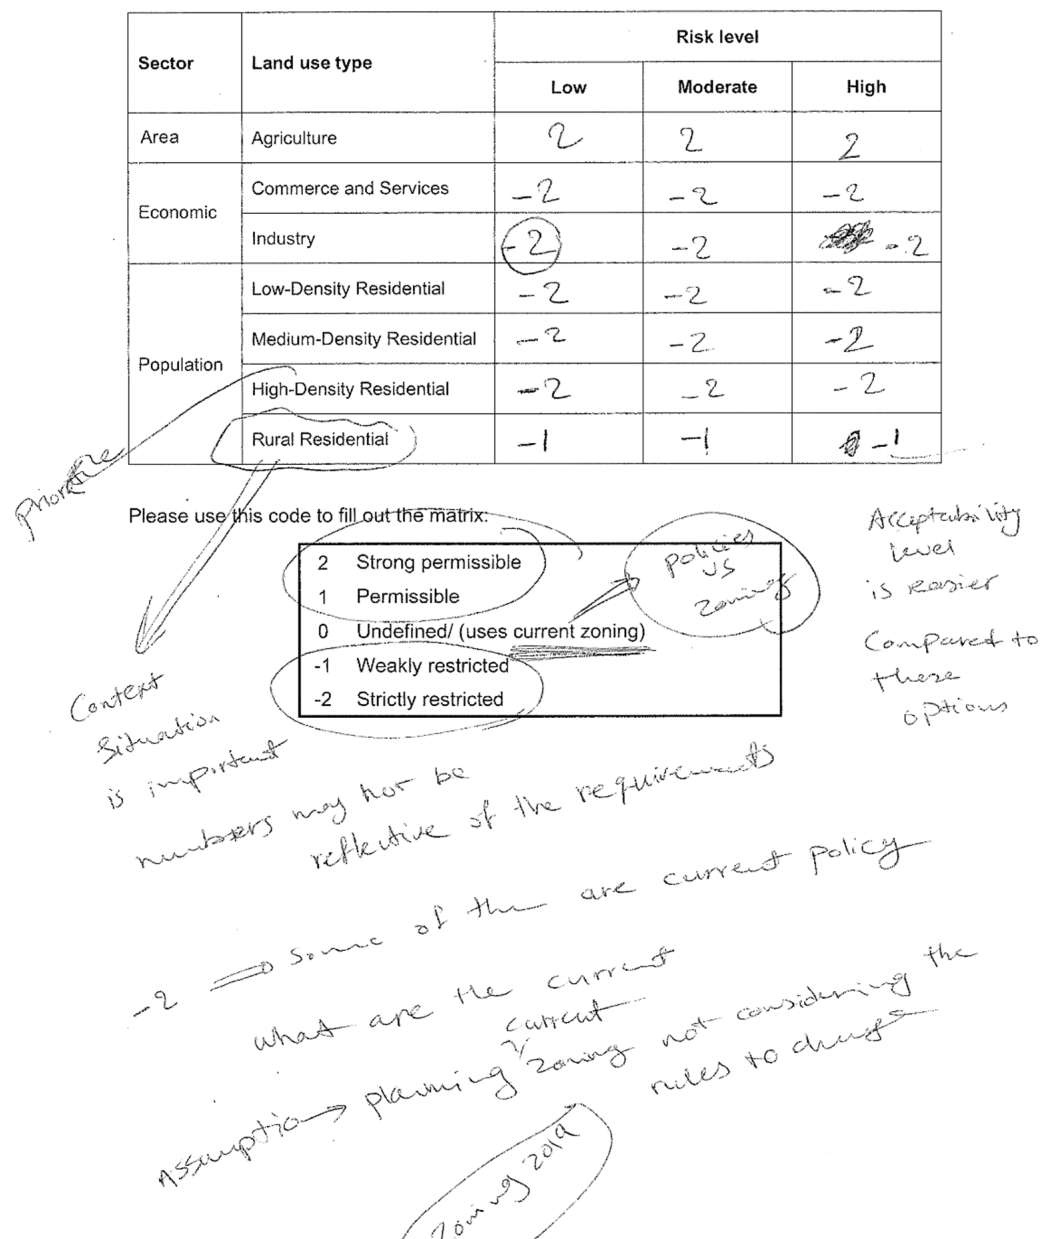 Risk level
Sector Land use type
Low Moderate High
Area Agriculture 2 2 2
Economic
Commerce and Services -2 -2 -2
Industry -2 -2 -2
Population
Low-Density Residential -2 -2 -2
Medium-Density Residential -2 -2 -2
High-Density Residential -2 -2 -2
Rural Residential -1 -1 -1
Please use this code to fill out the matrix:
2 Strong permissible
1 Permissible
0 Undefined/ (uses current zoning)
-1 Weakly restricted
-2 Strictly restricted
policies
vs
zoning
Acceptability
level
is easier
Compared to
these
options
Context
Situation
is important
numbers may not be
reflective of the requirements
-2 Some of the are current policy
what are the current
current
Assumption planning zoning not considering the
rules to change
Zoning 2019